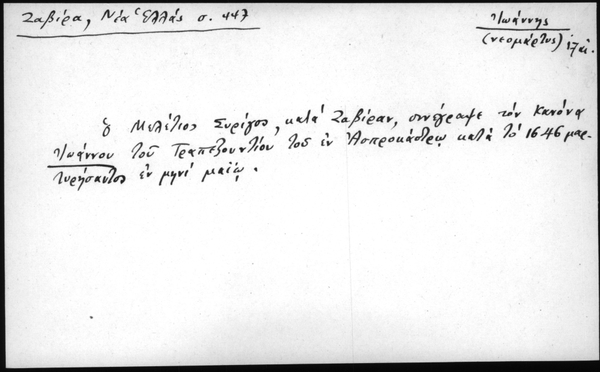 Ζαβίρα, Νέα Ἑλλάς σ. 447
Ἰωάννης
(νεομάρτυς) 17 αἰ.
Ὁ Μελέτιος Συρίγος, κατά Ζαβίραν, συνέγραψε τόν Κανόνα
Ἰωάννου τοῦ Τραπεζουντίου τοῦ ἐν Ἀσπροκάστρῳ κατά τό 1646 μαρ-
τυρήσαντος ἐν μηνί μαΐῳ.